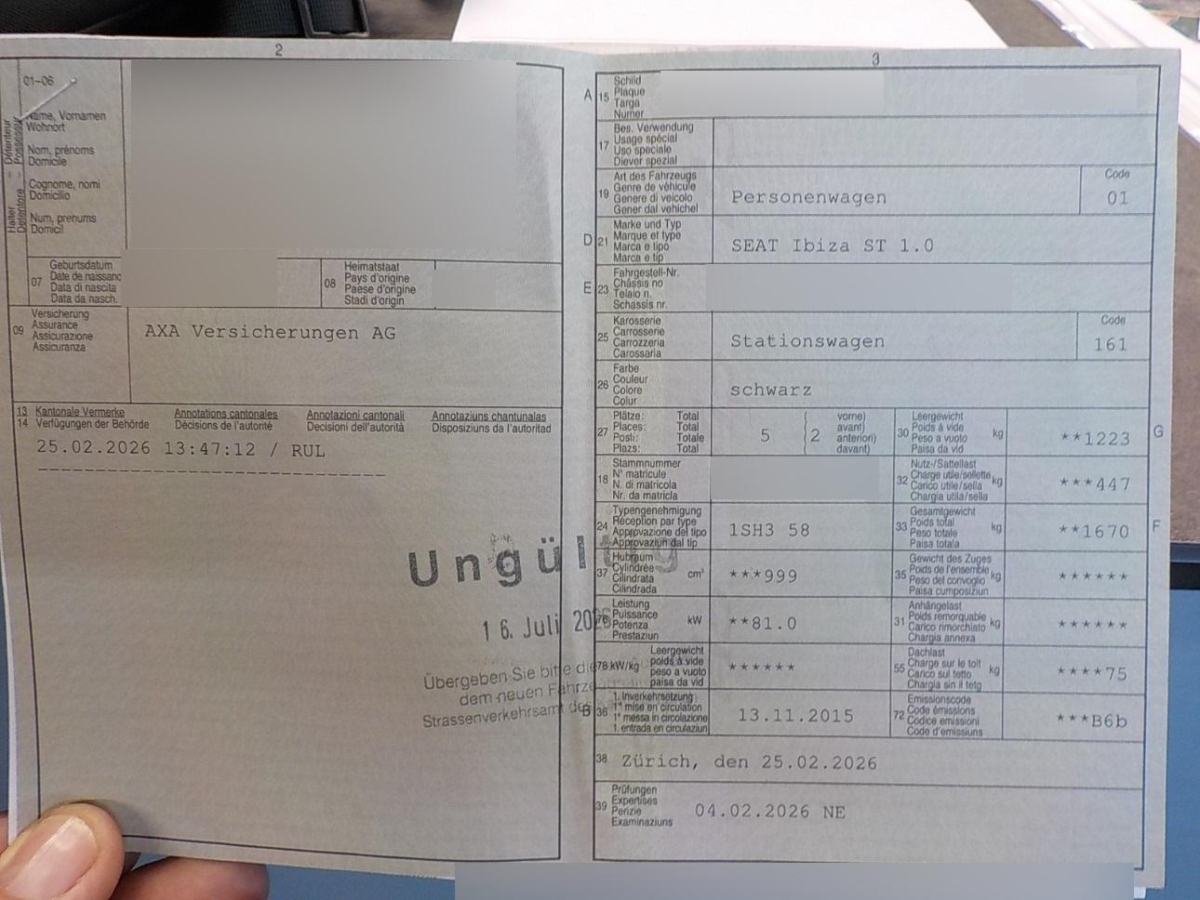 2
01-06
Name, Vornamen
Wohnort
Nom, prénoms
Domicile
Cognome, nomi
Domicilio
Num, prenums
Domicil
Halter Détenteur
Detentore Possessur
07 Geburtsdatum
Date de naissanc
Data di nascita
Data da nasch.
08 Heimatstaat
Pays d'origine
Paese d'origine
Stadi d'origin
09 Versicherung
Assurance
Assicurazione
Assicuranza
AXA Versicherungen AG
13 Kantonale Vermerke Annotations cantonales Annotazioni cantonali Annotaziuns chantunalas
14 Verfügungen der Behörde Décisions de l'autorité Decisioni dell'autorità Disposiziuns da l'autoritad
25.02.2026 13:47:12 / RUL
Ungültig
16. Juli 2026
Übergeben Sie bitte die
dem neuen Fahrze
Strassenverkehrsamt des
3
A 15 Schild
Plaque
Targa
Numer
17 Bes. Verwendung
Usage spécial
Uso speciale
Diever spezial
19 Art des Fahrzeugs
Genre de véhicule
Genere di veicolo
Gener dal vehichel
Personenwagen
Code
01
D 21 Marke und Typ
Marque et type
Marca e tipo
Marca e tip
SEAT Ibiza ST 1.0
E 23 Fahrgestell-Nr.
Châssis no
Telaio n.
Schassis nr.
25 Karosserie
Carrosserie
Carrozzeria
Carossaria
Stationswagen
Code
161
26 Farbe
Couleur
Colore
Colur
schwarz
27 Plätze: Total
Places: Total
Posti: Totale
Plazs: Total
5 (2 vorne)
avant)
anteriori)
davant)
30 Leergewicht
Poids à vide
Peso a vuoto
Paisa da vid
kg
**1223 G
18 Stammnummer
N° matricule
N. di matricola
Nr. da matricla
32 Nutz-/Sattellast
Charge utile/sellette
Carico utile/sella
Chargia utila/sella
kg
***447
24 Typengenehmigung
Réception par type
Approvazione del tipo
Approvaziun dal tip
1SH3 58
33 Gesamtgewicht
Poids total
Peso totale
Paisa totala
kg
**1670 F
37 Hubraum
Cylindrée
Cilindrata
Cilindrada
cm³
***999
35 Gewicht des Zuges
Poids de l'ensemble
Peso del convoglio
Paisa cumposiziun
kg
******
76 Leistung
Puissance
Potenza
Prestaziun
kW
**81.0
31 Anhängelast
Poids remorquable
Carico rimorchiato
Chargia annexa
kg
******
78 kW/kg Leergewicht
poids à vide
peso a vuoto
paisa da vid
******
55 Dachlast
Charge sur le toit
Carico sul tetto
Chargia sin il tetg
kg
****75
B 36 1. Inverkehrsetzung
1re mise en circulation
1a messa in circolazione
1. entrada en circulaziun
13.11.2015
72 Emissionscode
Code émissions
Codice emissioni
Code d'emissiuns
***B6b
38 Zürich, den 25.02.2026
39 Prüfungen
Expertises
Perizie
Examinaziuns
04.02.2026 NE